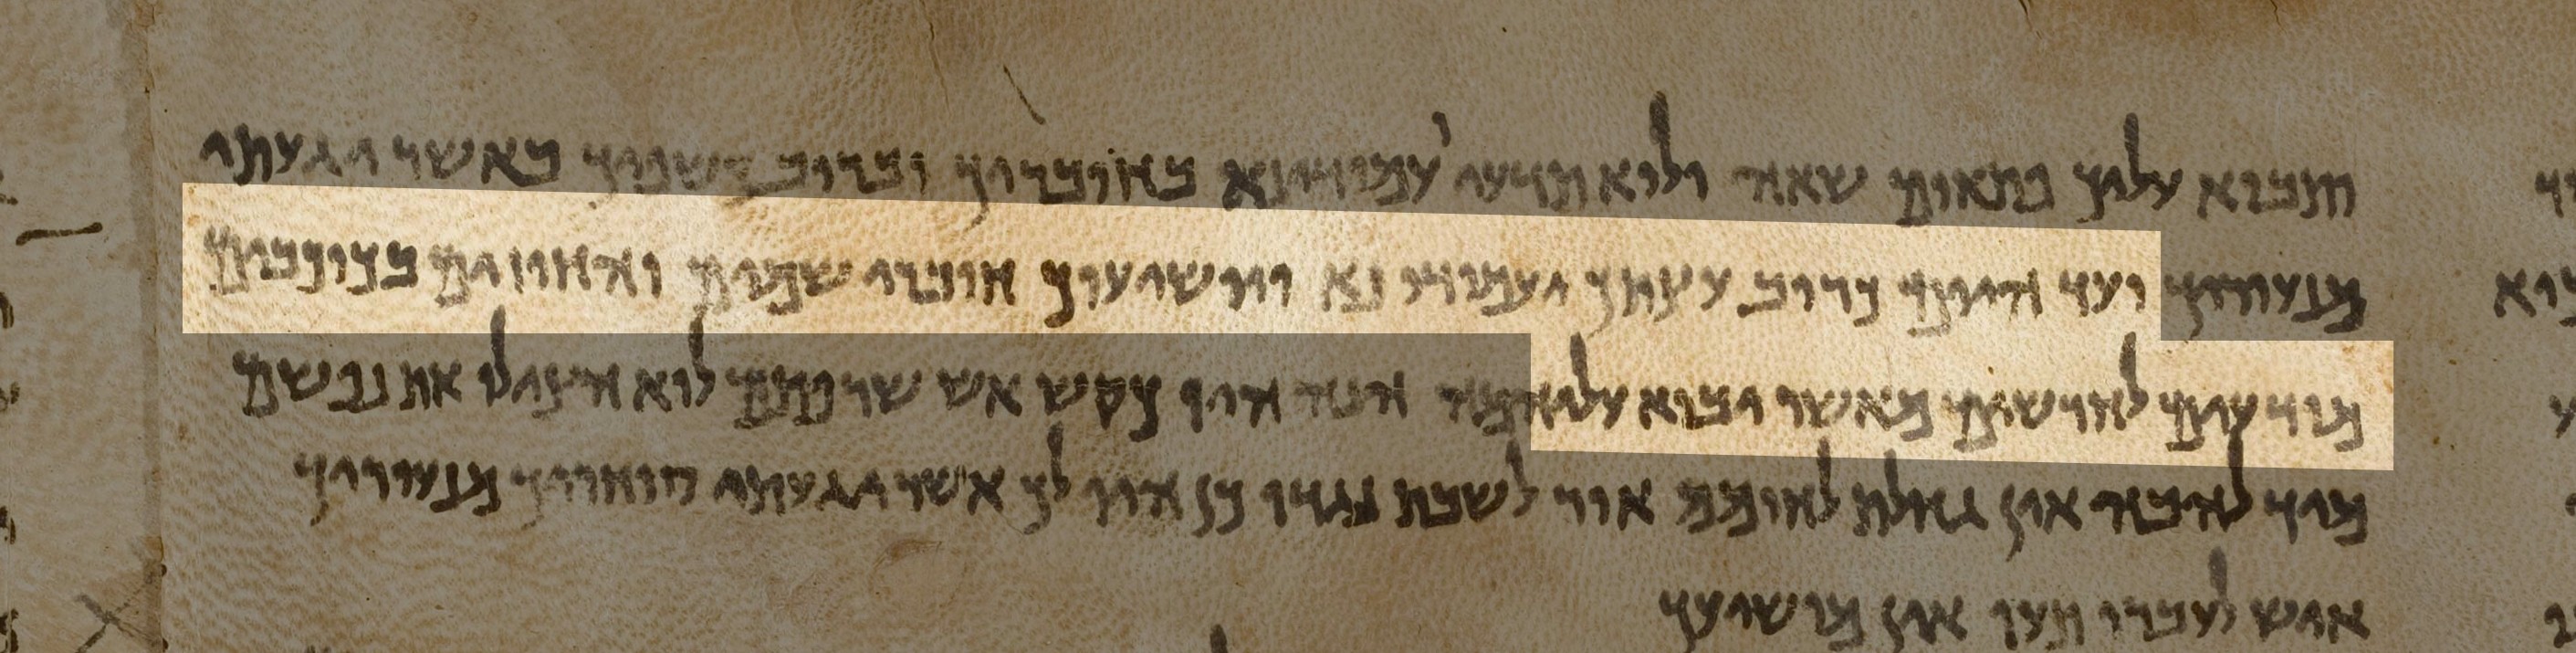 ותבוא עליך פתאום שאה ולוא תדעי עמודי נא בחובריך וברוב כשפיך כאשר יגעתי
מנעוריך ועד היום כרוב עצתך יעמודו נא ויושיעוך חוברי שמים והחוזים בכוכבים
מודיעים לחודשים מאשר יבוא עליהמה הנה היו כקש אש שרפתם לוא הצילו את נפשם
מיד להבה אין גחלת לחומם אור לשבת נגדו כן היו לך אשר יגעתי סוחריך מנעוריך
איש לעברו תעו אין מושיעך